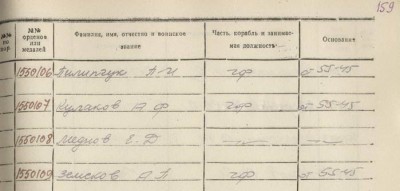 159
№№ по пор. №№ орденов или медалей Фамилия, имя, отчество и воинское звание Часть, корабль и занимаемая должность Основание
1550106 Пилипчук А-И гф от 55-45
1550107 Кулаков А Ф гф от 55-45
1550108 Леднов Е. Д — —
1550109 Земсков А. П. гф от 55-45